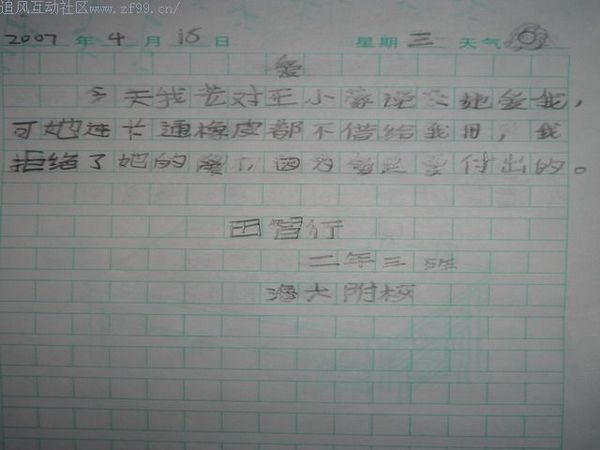 追风互动社区www.zf99.cn/
2007 年 4 月 日 星期 三 天气
爱
今天我 对王小 说：她爱我，
可她连卡通橡皮都不借给我用，我
拒绝了她的爱了，因为爱是要付出的。
田智行
二年三班
海大附校